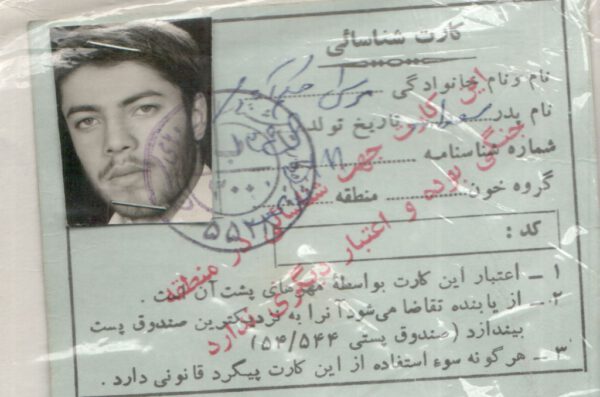 کارت شناسائی
نام و نام خانوادگی
نام پدر تاریخ تولد
شماره شناسنامه
گروه خون منطقه
کد :
۱ – اعتبار این کارت بواسطهٔ مهرهای پشت آن است .
۲ – از یابنده تقاضا می‌شود آنرا به نزدیکترین صندوق پست
بیندازد (صندوق پستی ۵۴/۵۴۴)
۳ – هرگونه سوء استفاده از این کارت پیگرد قانونی دارد .
این کارت جهت شناسائی در منطقه
جنگی بوده و اعتبار دیگری ندارد